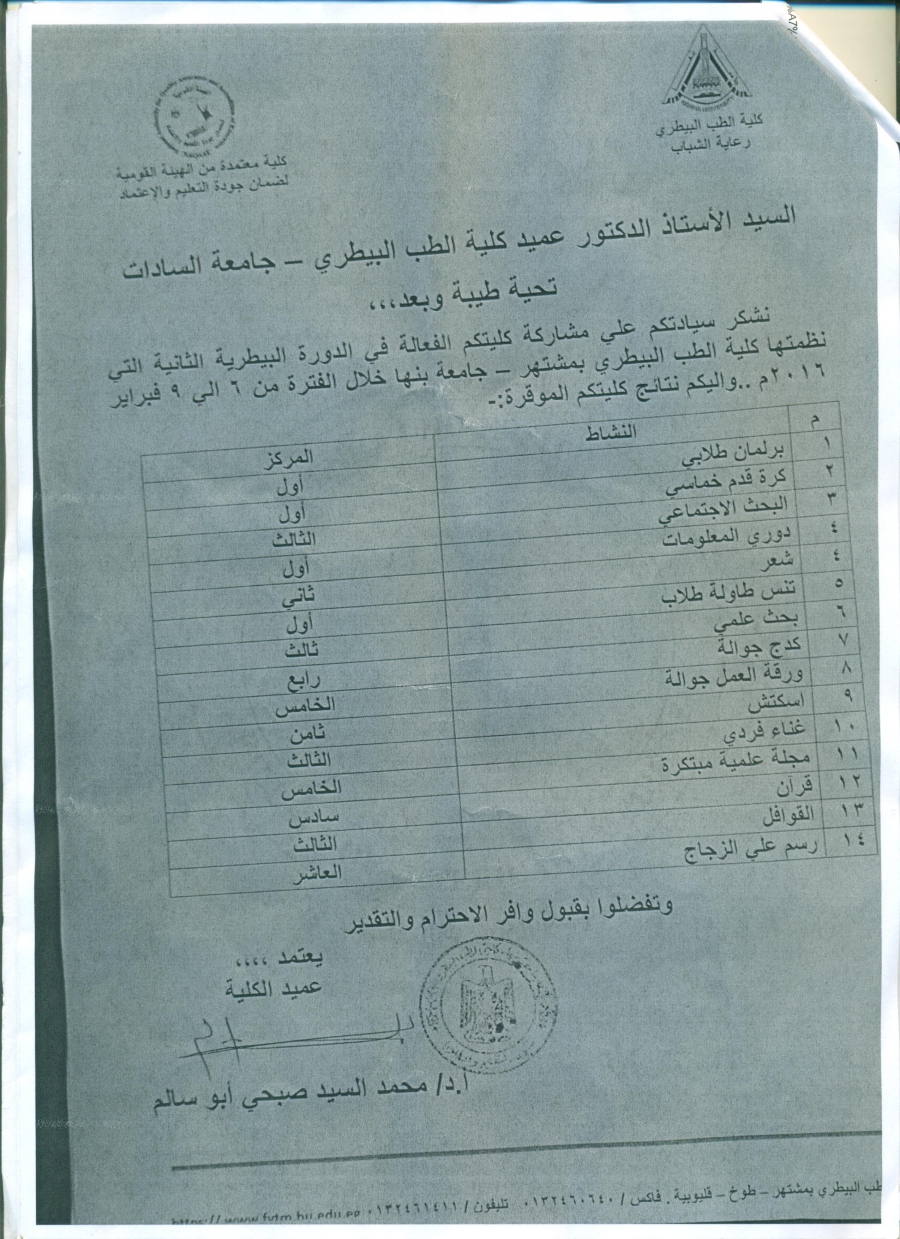 كلية الطب البيطري
رعاية الشباب
كلية معتمدة من الهيئة القومية
لضمان جودة التعليم والإعتماد
السيد الأستاذ الدكتور عميد كلية الطب البيطري – جامعة السادات
تحية طيبة وبعد،،،
نشكر سيادتكم علي مشاركة كليتكم الفعالة في الدورة البيطرية الثانية التي
نظمتها كلية الطب البيطري بمشتهر – جامعة بنها خلال الفترة من ٦ الي ٩ فبراير
٢٠١٦م ..واليكم نتائج كليتكم الموقرة:-
م النشاط المركز
١ برلمان طلابي أول
٢ كرة قدم خماسي أول
٣ البحث الاجتماعي الثالث
٤ دوري المعلومات أول
٤ شعر ثاني
٥ تنس طاولة طلاب أول
٦ بحث علمي ثالث
٧ كدج جوالة رابع
٨ ورقة العمل جوالة الخامس
٩ اسكتش ثامن
١٠ غناء فردي الثالث
١١ مجلة علمية مبتكرة الخامس
١٢ قرآن سادس
١٣ القوافل الثالث
١٤ رسم علي الزجاج العاشر
وتفضلوا بقبول وافر الاحترام والتقدير
يعتمد ،،،،
عميد الكلية
أ.د/ محمد السيد صبحي أبو سالم
طب البيطري بمشتهر – طوخ – قليوبية . فاكس / ٠١٣٢٤٦٠٦٤٠ تليفون / ٠١٣٢٤٦١٤١١